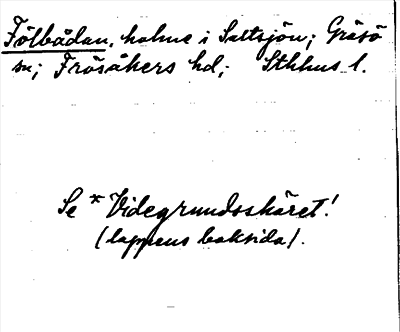 Fölbådan, holme i Saltsjön; Gräsö
sn; Frösåkers hd; Sthhus l.
Se *Videgrundsskäret!
(lappens baksida).